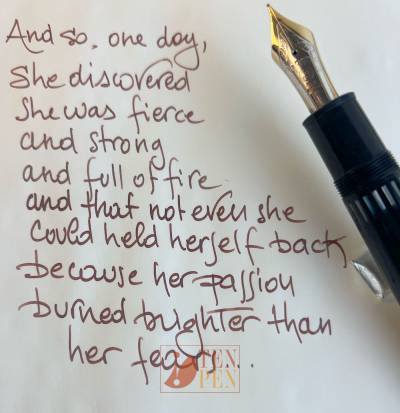 And so, one day,
She discovered
She was fierce
and strong
and full of fire.
and that not even she
could held herself back
because her passion
burned brighter than
her fears...
TEN
PEN